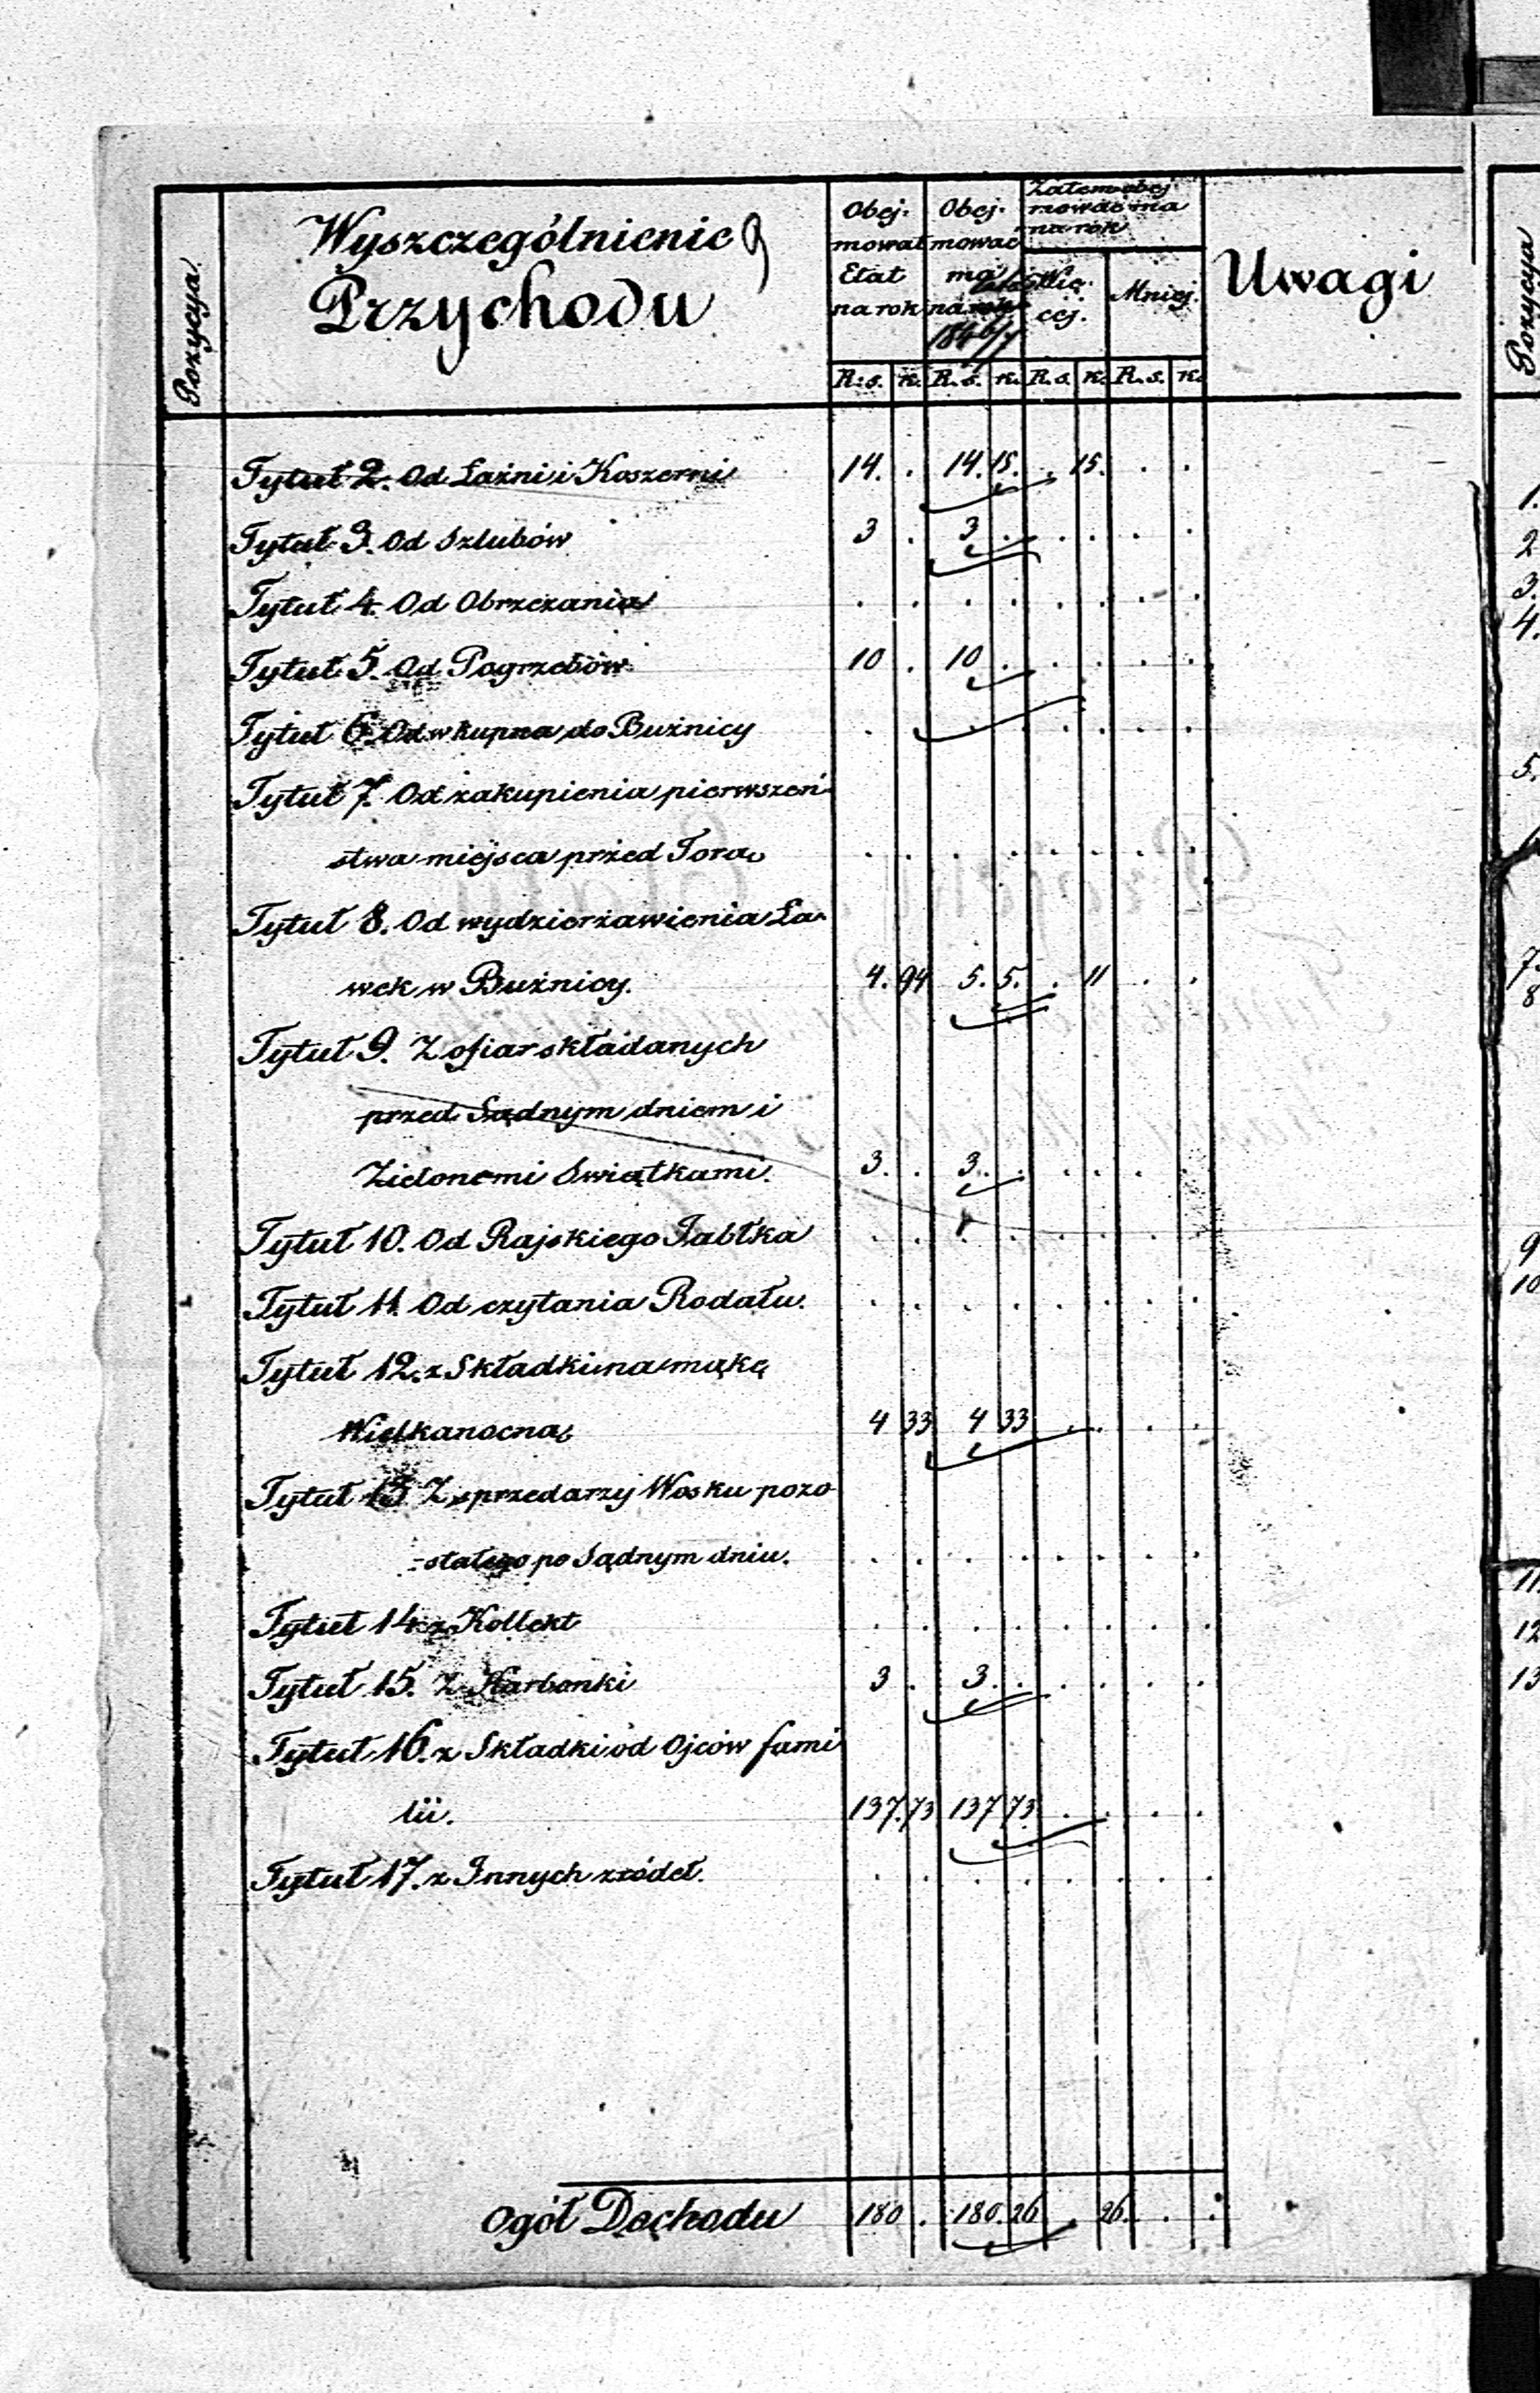 Pozycya.
Wyszczególnienie
Przychodu
Obej-
mował
Etat
na rok
Obej-
mować
ma
na rok
1846/7
Zatem obej
mować ma
na rok
Wię-
cej.
Mniej.
Uwagi
R: s. k. R. s. k. R. s. k. R. s. k.
Tytuł 2. Od Łaźni i Koszerni 14. . 14. 15. . 15. . .
Tytuł 3. Od Szlubów 3 . 3 . . . . .
Tytuł 4. Od Obrzezania . . . . . . . .
Tytuł 5. Od Pogrzebów 10 . 10 . . . . .
Tytuł 6. Od wkupna do Buźnicy . . . . . . . .
Tytuł 7. Od zakupienia pierwszeń-
stwa miejsca przed Torą . . . . . . . .
Tytuł 8. Od wydzierżawienia Ła-
wek w Buźnicy. 4. 94 5. 5. . 11 . .
Tytuł 9. Z ofiar składanych
przed Sądnym dniem i
Zielonemi Swiątkami. 3. . 3. . . . .
Tytuł 10. Od Rajskiego Jabłka . . . . . . . .
Tytuł 11. Od czytania Rodału. . . . . . . . .
Tytuł 12. z Składki na mąkę
Wielkanocną 4 33 4 33 . . . .
Tytuł 13 Z sprzedarzy Wosku pozo-
-stałego po Sądnym dniu. . . . . . . . .
Tytuł 14 z Kollekt . . . . . . . .
Tytuł 15. Z Karbonki 3 . 3. . . . . .
Tytuł 16. z Składki od Ojców fami
lii. 137. 73 137 73. . . . .
Tytuł 17. z Innych źródeł. . . . . . . . .
Ogół Dochodu 180 . 180. 26 . 26. . .
Pozycya
1.
2
3.
4.
5.
7.
8
9
10
11
12
13